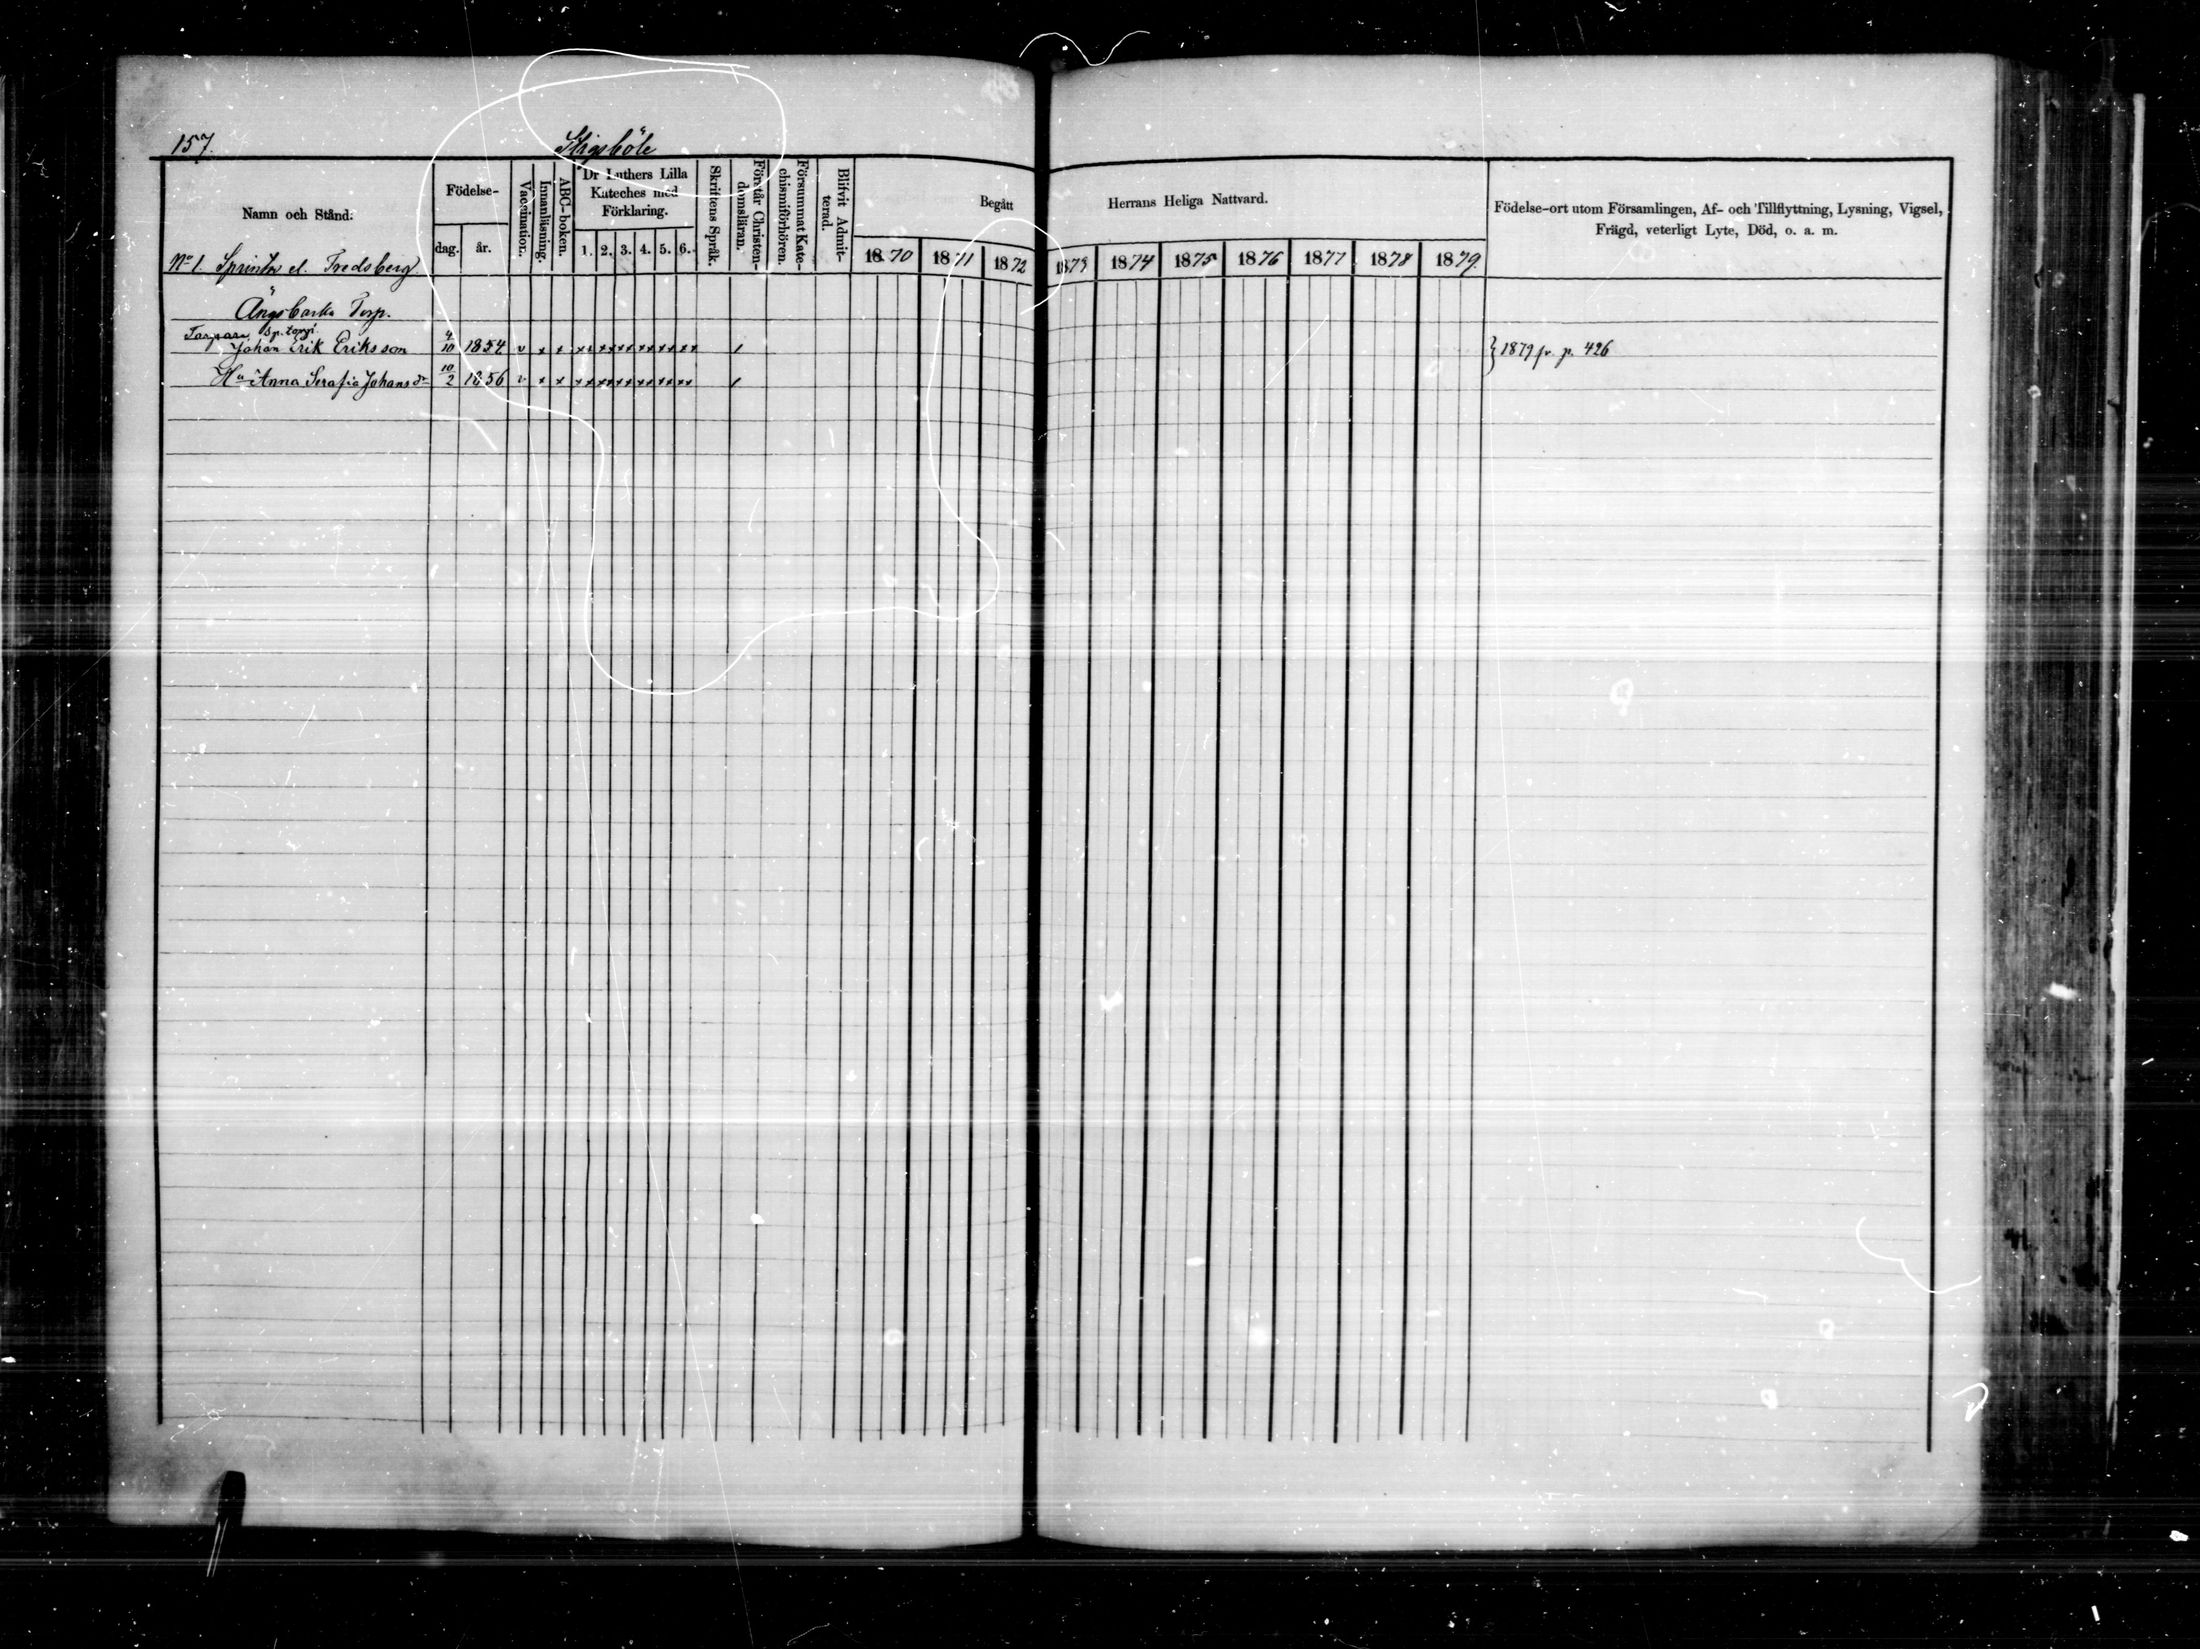 157.
Stigsböle
Namn och Stånd.
Födelse-
dag.
år.
Vaccination.
Innanläsning.
ABC-boken.
Dr Luthers Lilla
Kateches med
Förklaring.
1. 2. 3. 4. 5. 6.
Skriftens Språk.
Förstår Christen-
domsläran.
Försummat Kate-
chismiförhören.
Blifvit Admit-
terad.
Begått
Herrans Heliga Nattvard.
1870 1871 1872 1873 1874 1875 1876 1877 1878 1879.
Födelse-ort utom Församlingen, Af- och Tillflyttning, Lysning, Vigsel,
Frägd, veterligt Lyte, Död, o. a. m.
No 1. el. Fredsberg
Torp.
Johan Erik Eriksson 4/10 1854 v x x xx xx xx xx xx xx /
} 1879 fr. p. 426
Hu Anna Serafia Johansdr 10/2 1856 v x x xx xx xx xx xx xx /